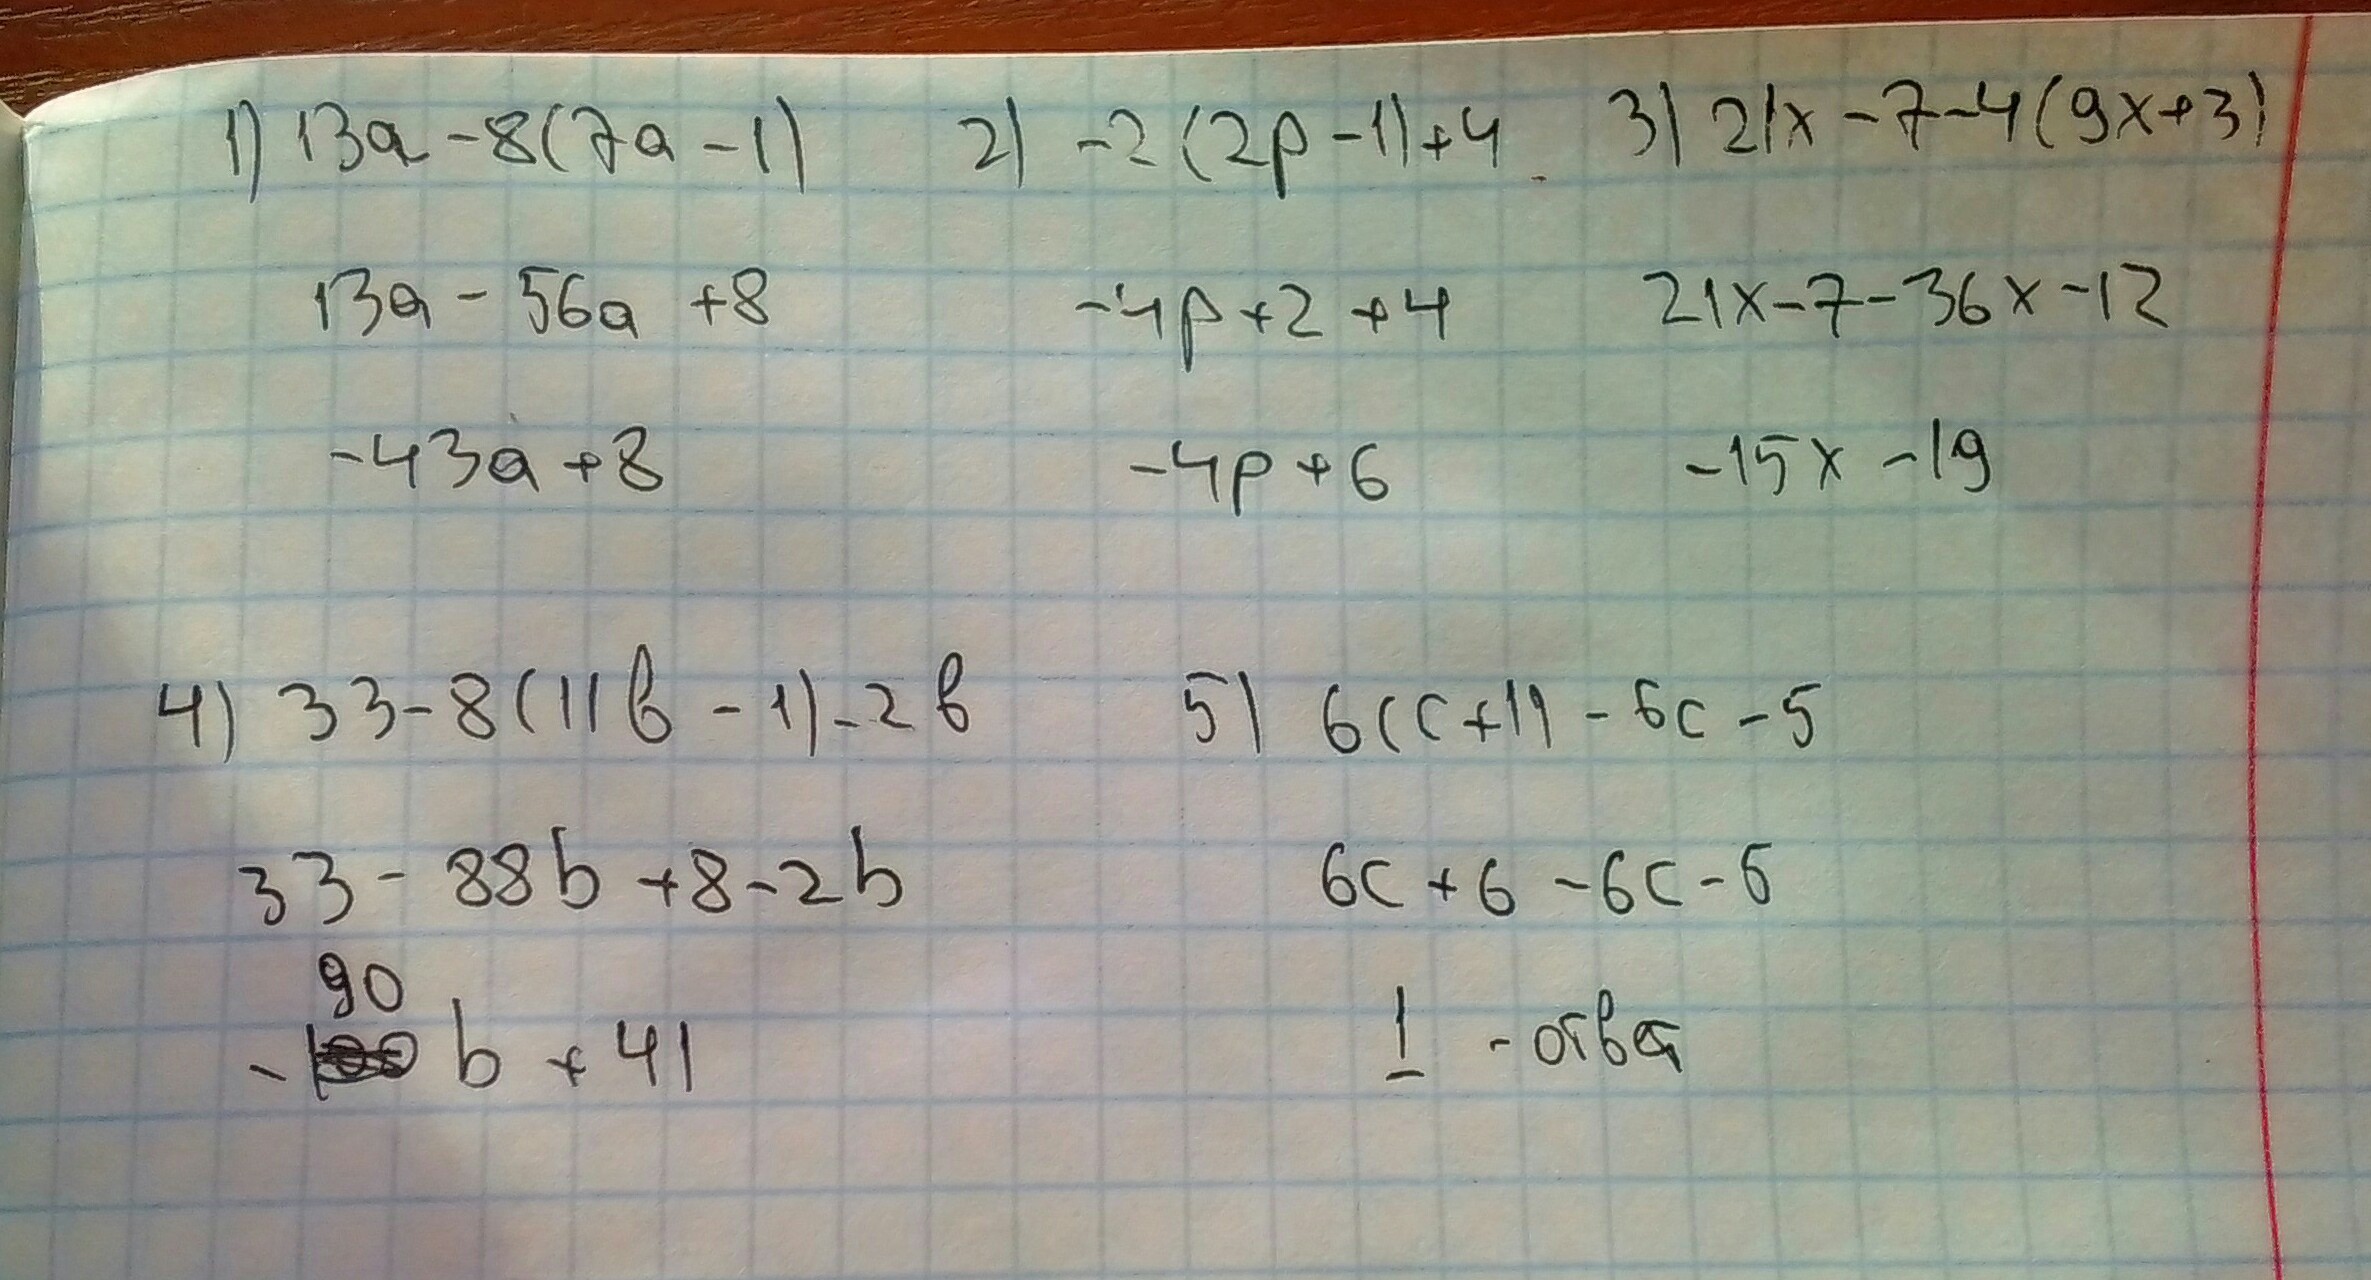 1) 13a - 8(7a - 1)
2) -2(2p - 1) + 4
3) 21x - 7 - 4(9x + 3)
13a - 56a + 8
-4p + 2 + 4
21x - 7 - 36x - 12
-43a + 8
-4p + 6
-15x - 19
4) 33 - 8(11b - 1) - 2b
5) 6(c + 1) - 6c - 5
33 - 88b + 8 - 2b
6c + 6 - 6c - 5
90
- b + 41
1 - ответ